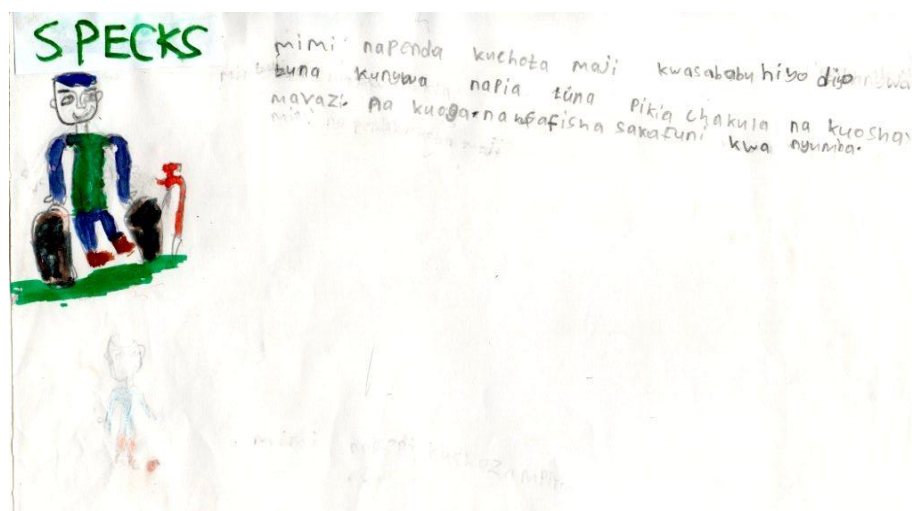 SPECKS
mimi napenda kuchota maji kwasababu hiyo diyo
tuna kunywa napia tuna pikia chakula na kuosha
mavazi. na kuoga. na kusafisha sakafuni kwa nyumba.
mimi